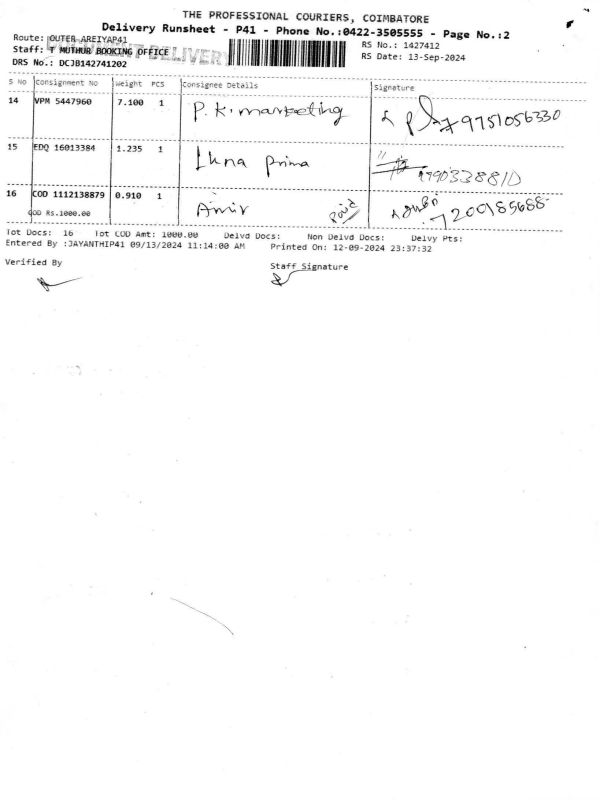 THE PROFESSIONAL COURIERS, COIMBATORE
Delivery Runsheet - P41 - Phone No.:0422-3505555 - Page No.:2
Route: OUTER AREIYAP41 RS No.: 1427412
Staff: T MUTHUR BOOKING OFFICE RS Date: 13-Sep-2024
DRS No.: DCJB142741202
DOCUMENT DELIVERY
S No Consignment No Weight PCS Consignee Details Signature
14 VPM 5447960 7.100 1 P. K. marketing 9751056330
15 EDQ 16013384 1.235 1 prima
16 COD 1112138879 0.910 1 Amir Paid 7200185688
COD Rs.1000.00
Tot Docs: 16 Tot COD Amt: 1000.00 Delvd Docs: Non Delvd Docs: Delvy Pts:
Entered By :JAYANTHIP41 09/13/2024 11:14:00 AM Printed On: 12-09-2024 23:37:32
Verified By Staff Signature